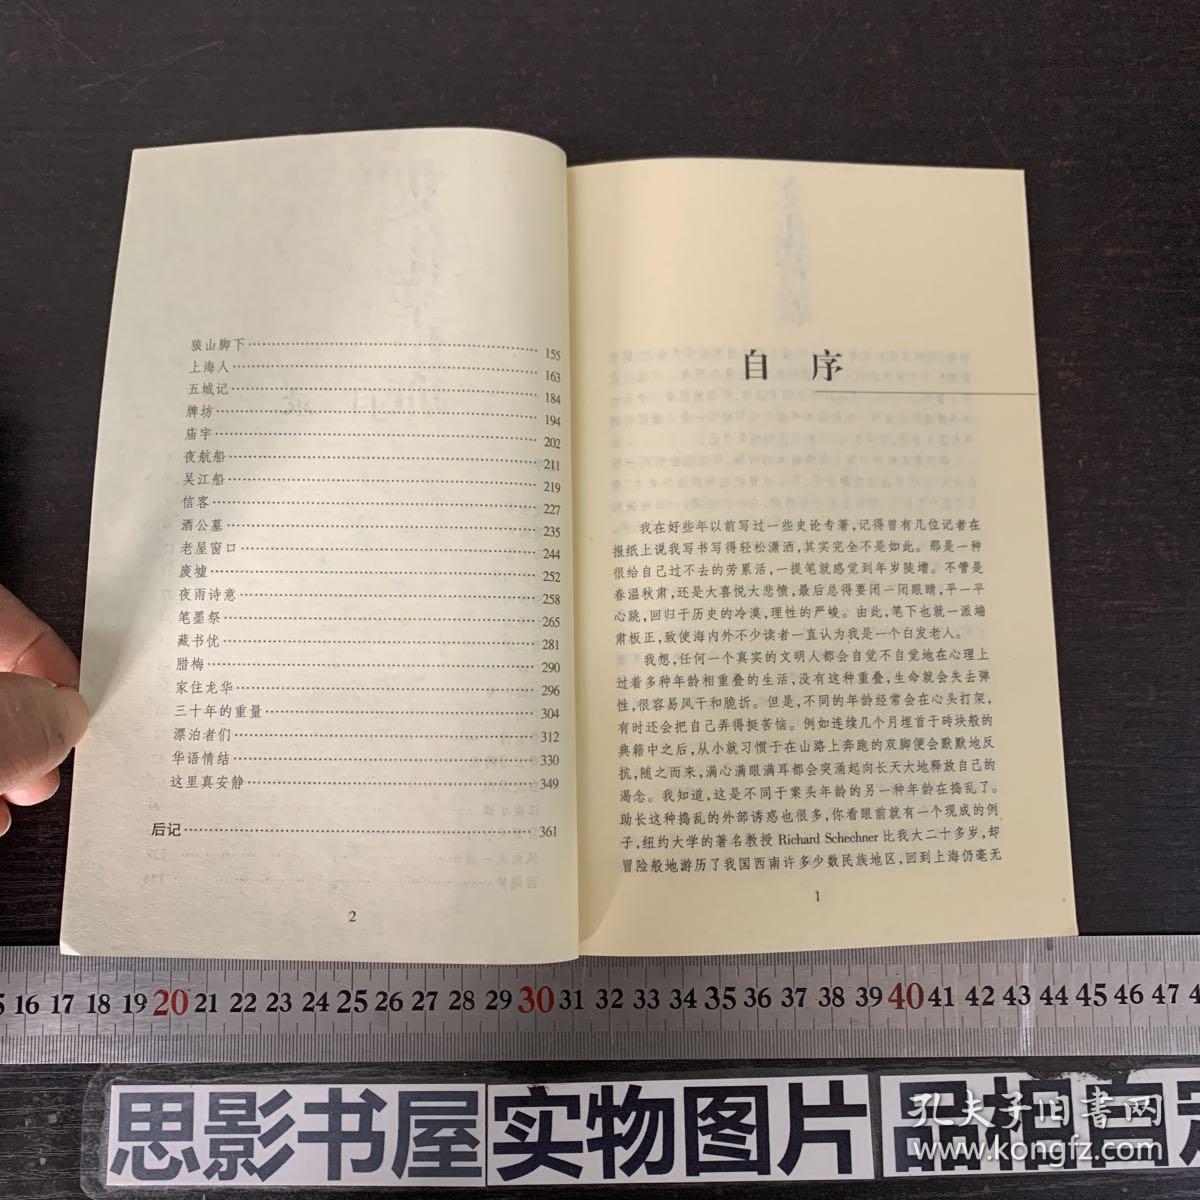 狼山脚下……155
上海人……163
五城记……184
牌坊……194
庙宇……202
夜航船……211
吴江船……219
信客……227
酒公墓……235
老屋窗口……244
废墟……252
夜雨诗意……258
笔墨祭……265
藏书忧……281
腊梅……290
家住龙华……296
三十年的重量……304
漂泊者们……312
华语情结……330
这里真安静……349
后记……361
2
自 序
我在好些年以前写过一些史论专著，记得曾有几位记者在
报纸上说我写书写得轻松潇洒，其实完全不是如此。那是一种
很给自己过不去的劳累活，一提笔就感觉到年岁陡增。不管是
春温秋肃，还是大喜悦大悲愤，最后总得要闭一闭眼睛，平一平
心跳，回归于历史的冷漠，理性的严峻。由此，笔下也就一派端
肃板正，致使海内外不少读者一直认为我是一个白发老人。
我想，任何一个真实的文明人都会自觉不自觉地在心理上
过着多种年龄相重叠的生活，没有这种重叠，生命就会失去弹
性，很容易风干和脆折。但是，不同的年龄经常会在心头打架，
有时还会把自己弄得挺苦恼。例如连续几个月埋首于砖块般的
典籍中之后，从小就习惯于在山路上奔跑的双脚便会默默地反
抗，随之而来，满心满眼满耳都会突涌起向长天大地释放自己的
渴念。我知道，这是不同于案头年龄的另一种年龄在捣乱了。
助长这种捣乱的外部诱惑也很多，你看眼前就有一个现成的例
子，纽约大学的著名教授 Richard Schechner 比我大二十多岁，却
冒险般地游历了我国西南许多少数民族地区，回到上海仍毫无
1
16 17 18 19 20 21 22 23 24 25 26 27 28 29 30 31 32 33 34 35 36 37 38 39 40 41 42 43 44 45 46 47
思影书屋 实物图片 品相自定
孔夫子旧书网
www.kongfz.com